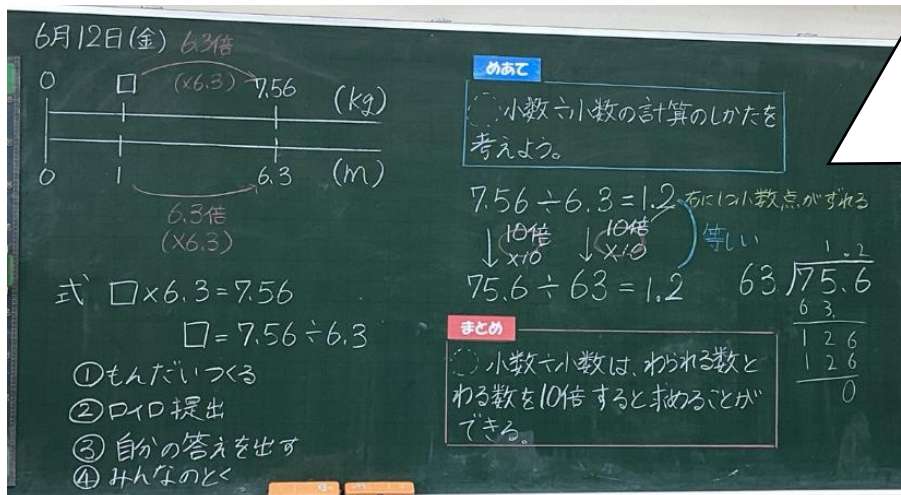 6月12日(金)
6.3倍
(×6.3)
0 □ 7.56 (kg)
0 1 6.3 (m)
6.3倍
(×6.3)
式 □×6.3=7.56
□=7.56÷6.3
①もんだいつくる
②ロイロ提出
③自分の答えを出す
④みんなのとく
めあて
小数÷小数の計算のしかたを
考えよう。
7.56÷6.3=1.2 右に1つ小数点がずれる
↓10倍 ↓10倍 等しい
×10 ×10
75.6÷63=1.2
1.2
63)75.6
63.
126
126
0
まとめ
小数÷小数は、わられる数と
わる数を10倍すると求めることが
できる。